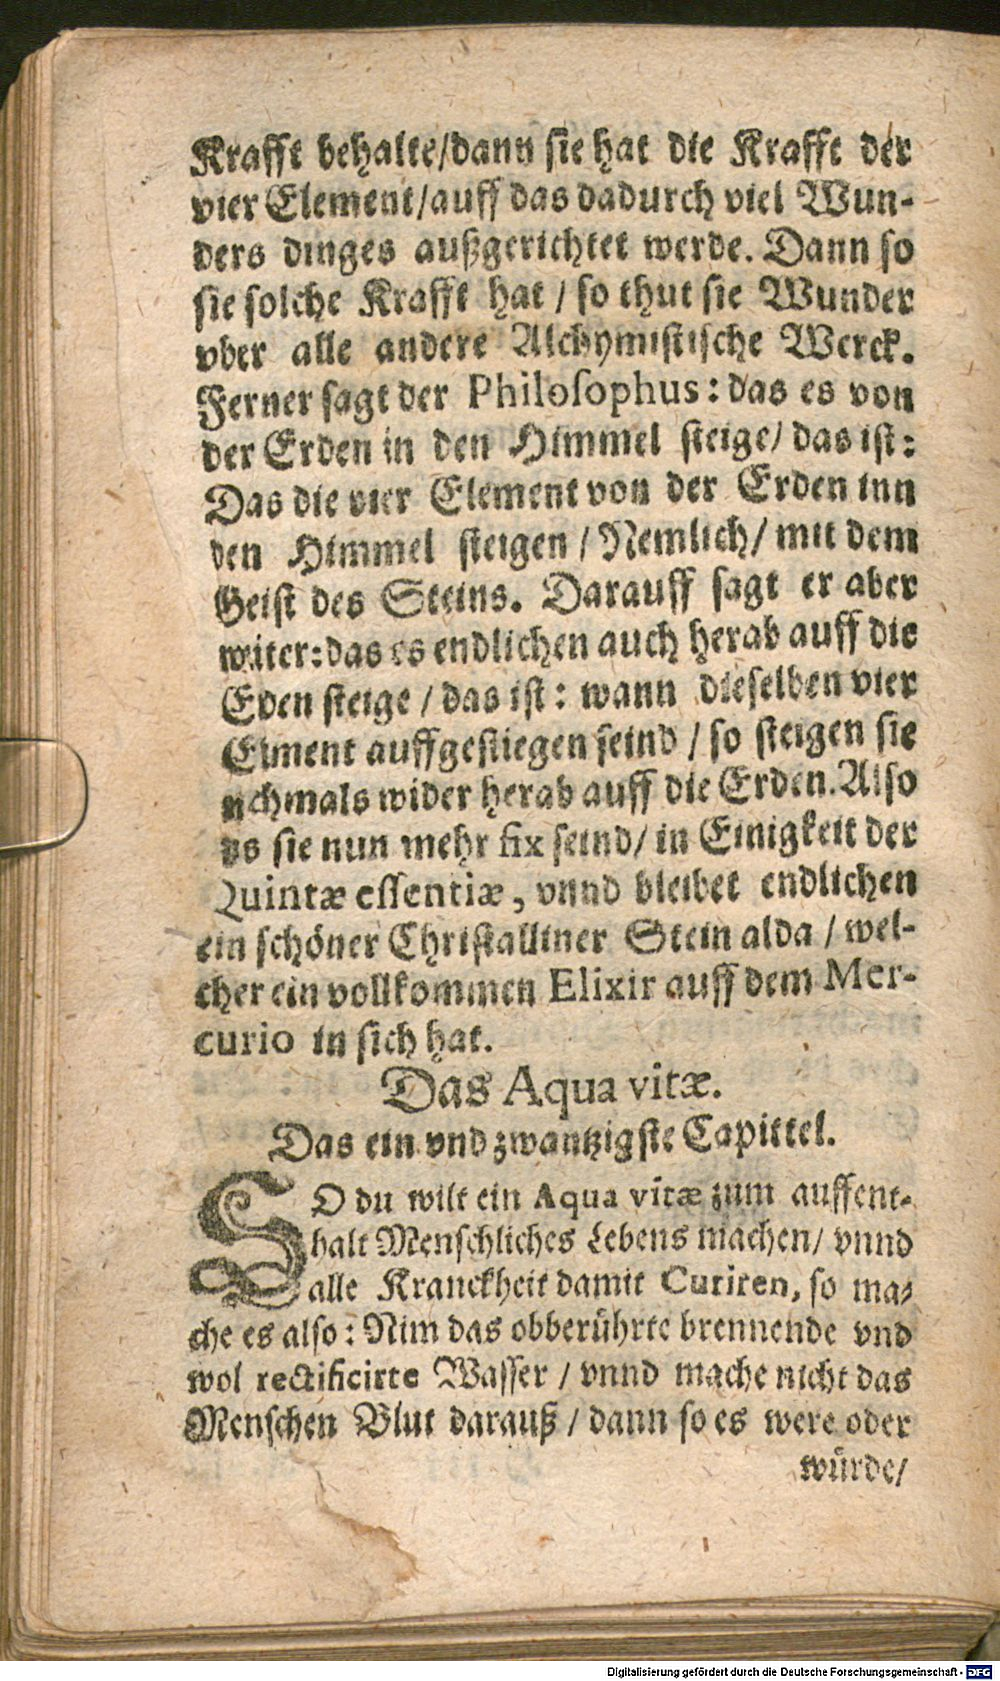 Krafft behalte/dann sie hat die Krafft der
vier Element/auff das dadurch viel Wun-
ders dinges außgerichtet werde. Dann so
sie solche Krafft hat / so thut sie Wunder
vber alle andere Alchymistische Werck.
Ferner sagt der Philosophus: das es von
der Erden in den Himmel steige/ das ist:
Das die vier Element von der Erden inn
den Himmel steigen / Nemlich/ mit dem
Geist des Steins. Darauff sagt er aber
witer: das es endlichen auch herab auff die
Eden steige / das ist: wann dieselben vier
Elment auffgestiegen seind / so steigen sie
nchmals wider herab auff die Erden. Also
ds sie nun mehr fix seind/ in Einigkeit der
Quintæ essentiæ, vnnd bleibet endlichen
ein schöner Christalliner Stein alda / wel-
cher ein vollkommen Elixir auff dem Mer-
curio in sich hat.
Das Aqua vitæ.
Das ein vnd zwantzigste Capittel.
SO du wilt ein Aqua vitæ zum auffent-
halt Menschliches Lebens machen/ vnnd
alle Kranckheit damit Curiren, so ma-
che es also: Nim das obberührte brennende vnd
wol rectificirte Wasser / vnnd mache nicht das
Menschen Blut darauß / dann so es were oder
würde/
Digitalisierung gefördert durch die Deutsche Forschungsgemeinschaft - DFG